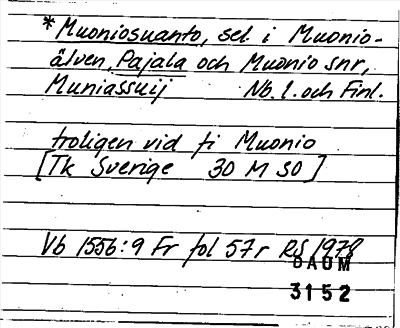 *Muoniosuanto, sel i Muonio-
älven, Pajala och Muonio snr,
Muniassuij Nb. l. och Finl.
troligen vid fi Muonio
[Tk Sverige 30 M SO]
Vb 1556:9 Fr fol 57r RS 1978
DAUM
3152